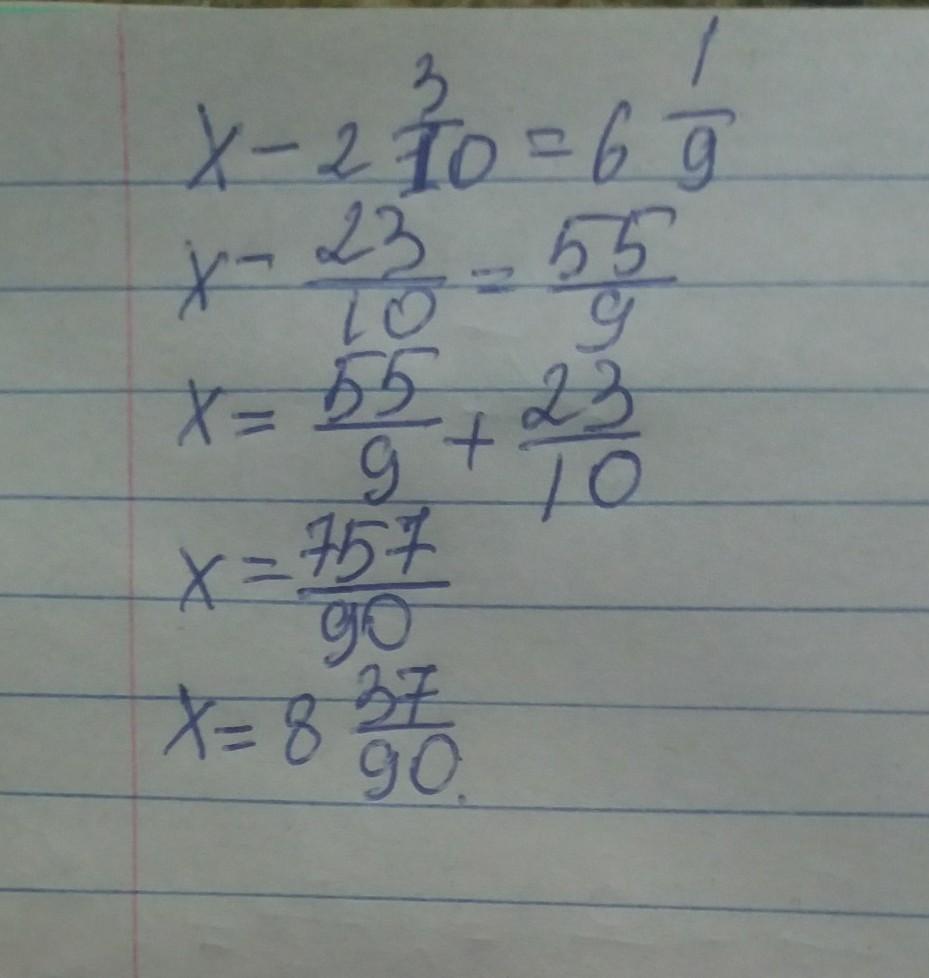 x - 2 3/10 = 6 1/9
x - 23/10 = 55/9
x = 55/9 + 23/10
x = 757/90
x = 8 37/90.